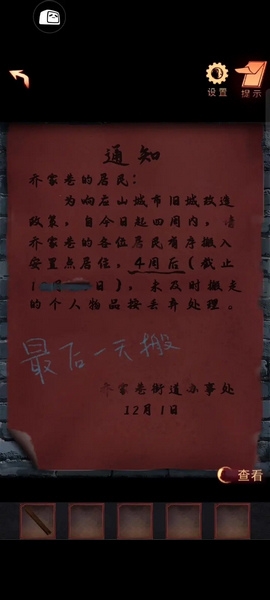 设置
提示
通知
齐家巷的居民：
为响应石山城市旧城改造
政策，自今日起四周内，请
齐家巷的各位居民有序搬入
安置点居住，4周后（截止
1日），未及时搬走
的个人物品按丢弃处理。
最后一天搬
齐家巷街道办事处
12月1日
查看